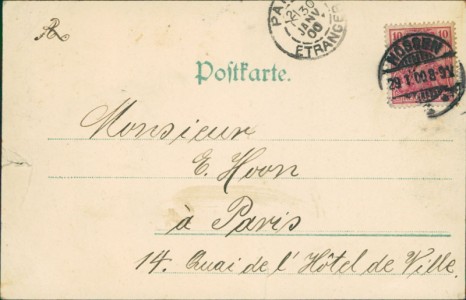 PA
30
JANV
00
ETRANGER
10 10
NOSSEN
29 1 00 8-9V
Postkarte.
Monsieur
E. Hoon
à Paris
14. Quai de l'Hôtel de Ville.